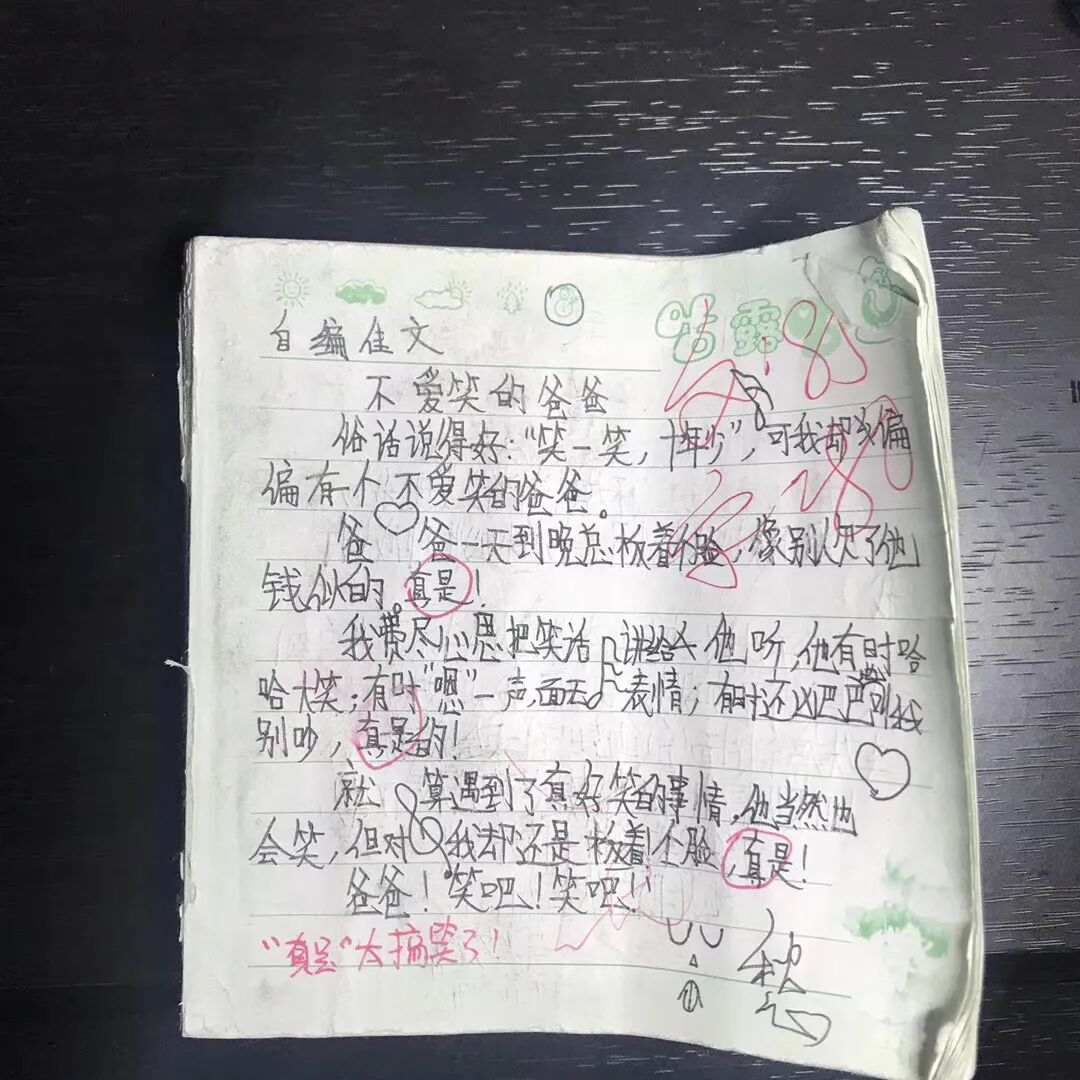 自编佳文
不爱笑的爸爸
俗话说得好:"笑一笑,十年少",可我却偏
偏有个不爱笑的爸爸。
爸爸一天到晚总板着个脸,像别人欠了他
钱似的。真是!
我费尽心思把笑话讲给他听,他有时哈
哈大笑;有时"嗯"一声,面无表情;有时还凶巴巴叫我
别吵,真是的!
就算遇到了真好笑的事情,他当然也
会笑,但对我却还是板着个脸,真是!
爸爸!笑吧!笑吧!
"真是"太搞笑了!